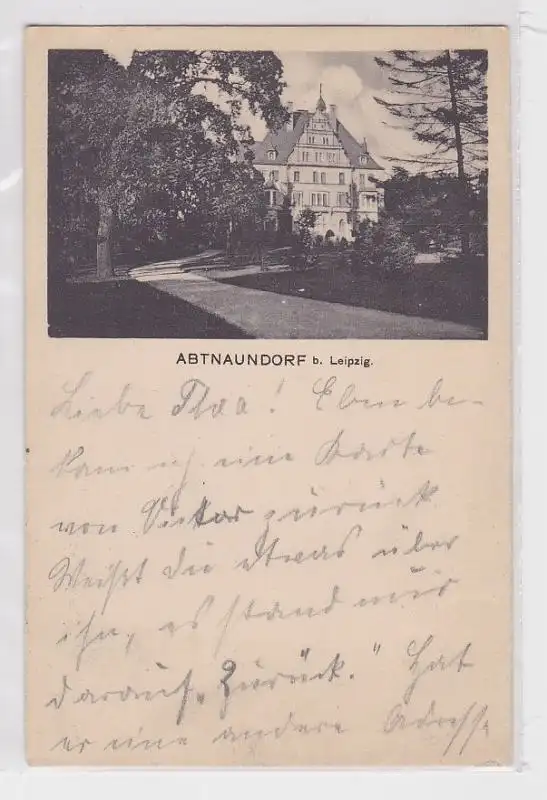 ABTNAUNDORF b. Leipzig.
Liebe Thea! Eben be-
kam ich eine Karte
von Victor zurück
Weißt du etwas über
ihn, es stand nur
darauf „Zurück." Hat
er eine andere Adresse